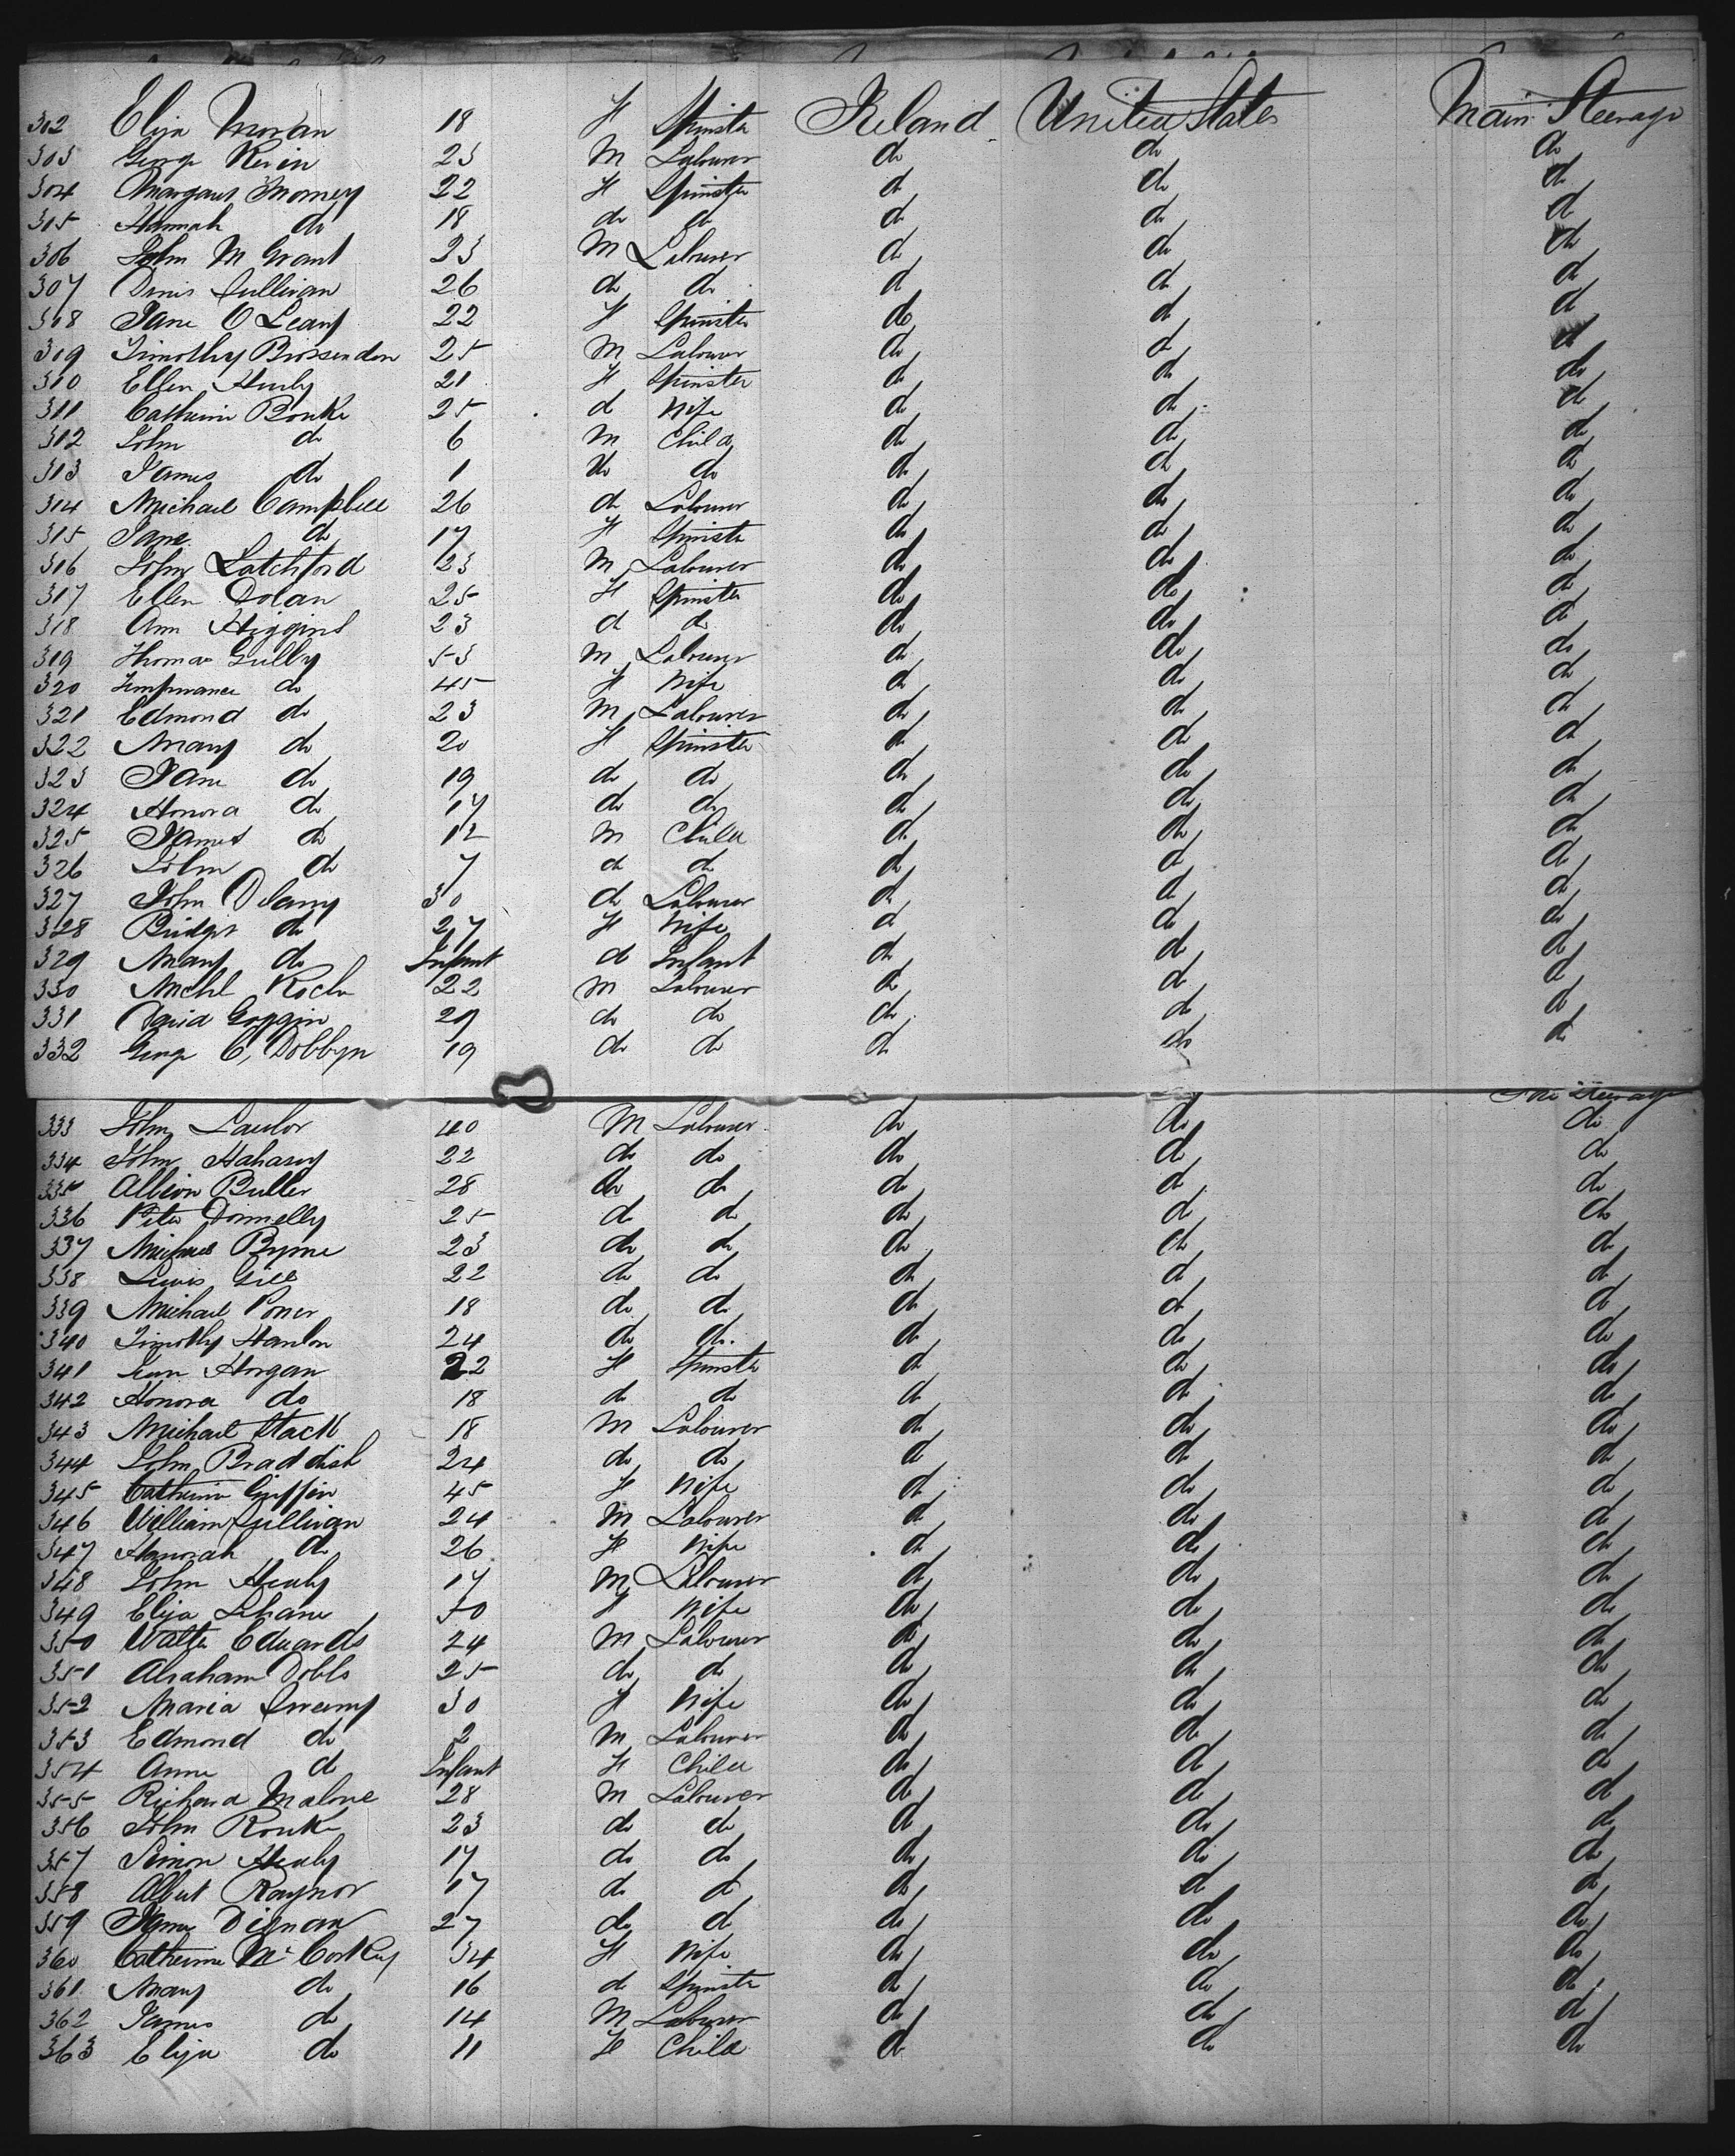 302 Eliza Moran 18 F Spinster Ireland United States Main Steerage
303 George Kevin 23 M Labourer do do do
304 Margaret 22 F Spinster do do do
305 Hannah do 18 do do do do do
306 John M Grant 23 M Labourer do do do
307 Denis Sullivan 26 do do do do do
308 Jane O Leary 22 F Spinster do do do
309 Timothy Brossendon 25 M Labourer do do do
310 Ellen Healy 21 F Spinster do do do
311 Catherine Rourke 25 do Wife do do do
312 John do 6 M Child do do do
313 James do 1 do do do do do
314 Michael Campbell 26 do Labourer do do do
315 Jane do 17 F Spinster do do do
316 John Latchford 23 M Labourer do do do
317 Ellen Dolan 25 F Spinster do do do
318 Ann Higgins 23 do do do do do
319 Thomas Gully 53 M Labourer do do do
320 Temperance do 45 F Wife do do do
321 Edmond do 23 M Labourer do do do
322 Mary do 20 F Spinster do do do
323 Jane do 19 do do do do do
324 Honora do 17 do do do do do
325 James do 12 M Child do do do
326 John do 7 do do do do do
327 John Delany 30 do Labourer do do do
328 Bridget do 27 F Wife do do do
329 Mary do Infant do Infant do do do
330 Michl Roche 22 M Labourer do do do
331 David Goggin 29 do do do do do
332 George C, Dobbyn 19 do do do do do
Steerage
333 John Lawlor 40 M Labourer do do do
334 John Hahasy 22 do do do do do
335 Albion Butler 28 do do do do do
336 Peter Donnelly 25 do do do do do
337 Michael Byrne 23 do do do do do
338 Lewis Gill 22 do do do do do
339 Michael Power 18 do do do do do
340 Timothy Hanlon 24 do do do do do
341 Horgan 22 F Spinster do do do
342 Honora do 18 do do do do do
343 Michael Stack 18 M Labourer do do do
344 John Braddish 24 do do do do do
345 Catherine Griffin 45 F Wife do do do
346 William Sullivan 24 M Labourer do do do
347 Hanorah do 26 F Wife do do do
348 John Healy 17 M Labourer do do do
349 Eliza Lehane 50 F Wife do do do
350 Walter Edwards 24 M Labourer do do do
351 Abraham Dobbs 25 do do do do do
352 Maria Sweeny 30 F Wife do do do
353 Edmond do 2 M Labourer do do do
354 Anne do Infant F Child do do do
355 Richard Malone 28 M Labourer do do do
356 John Rourke 23 do do do do do
357 Simon Healy 17 do do do do do
358 Albert Raynor 17 do do do do do
359 James Dignan 27 do do do do do
360 Catherine Mc Corkey 34 F Wife do do do
361 Mary do 16 do Spinster do do do
362 James do 14 M Labourer do do do
363 Eliza do 11 F Child do do do